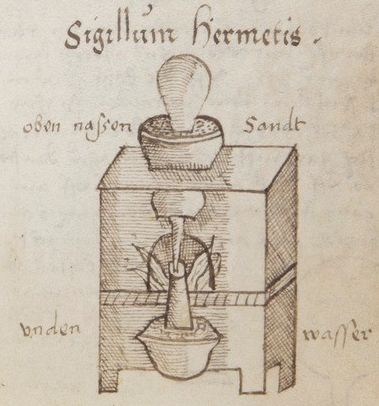 Sigillum hermetis.
oben nassen Sandt
vnden wasser